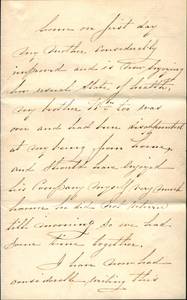 home on first day
my mother considerably
improved and is now enjoying
her usual state of health,
my brother Wm too was
over and had been disappointed
at my being from home,
and should have enjoyed
his company very much
however he did not return
till morning so we had
some time together.
I have now had
considerable writing this